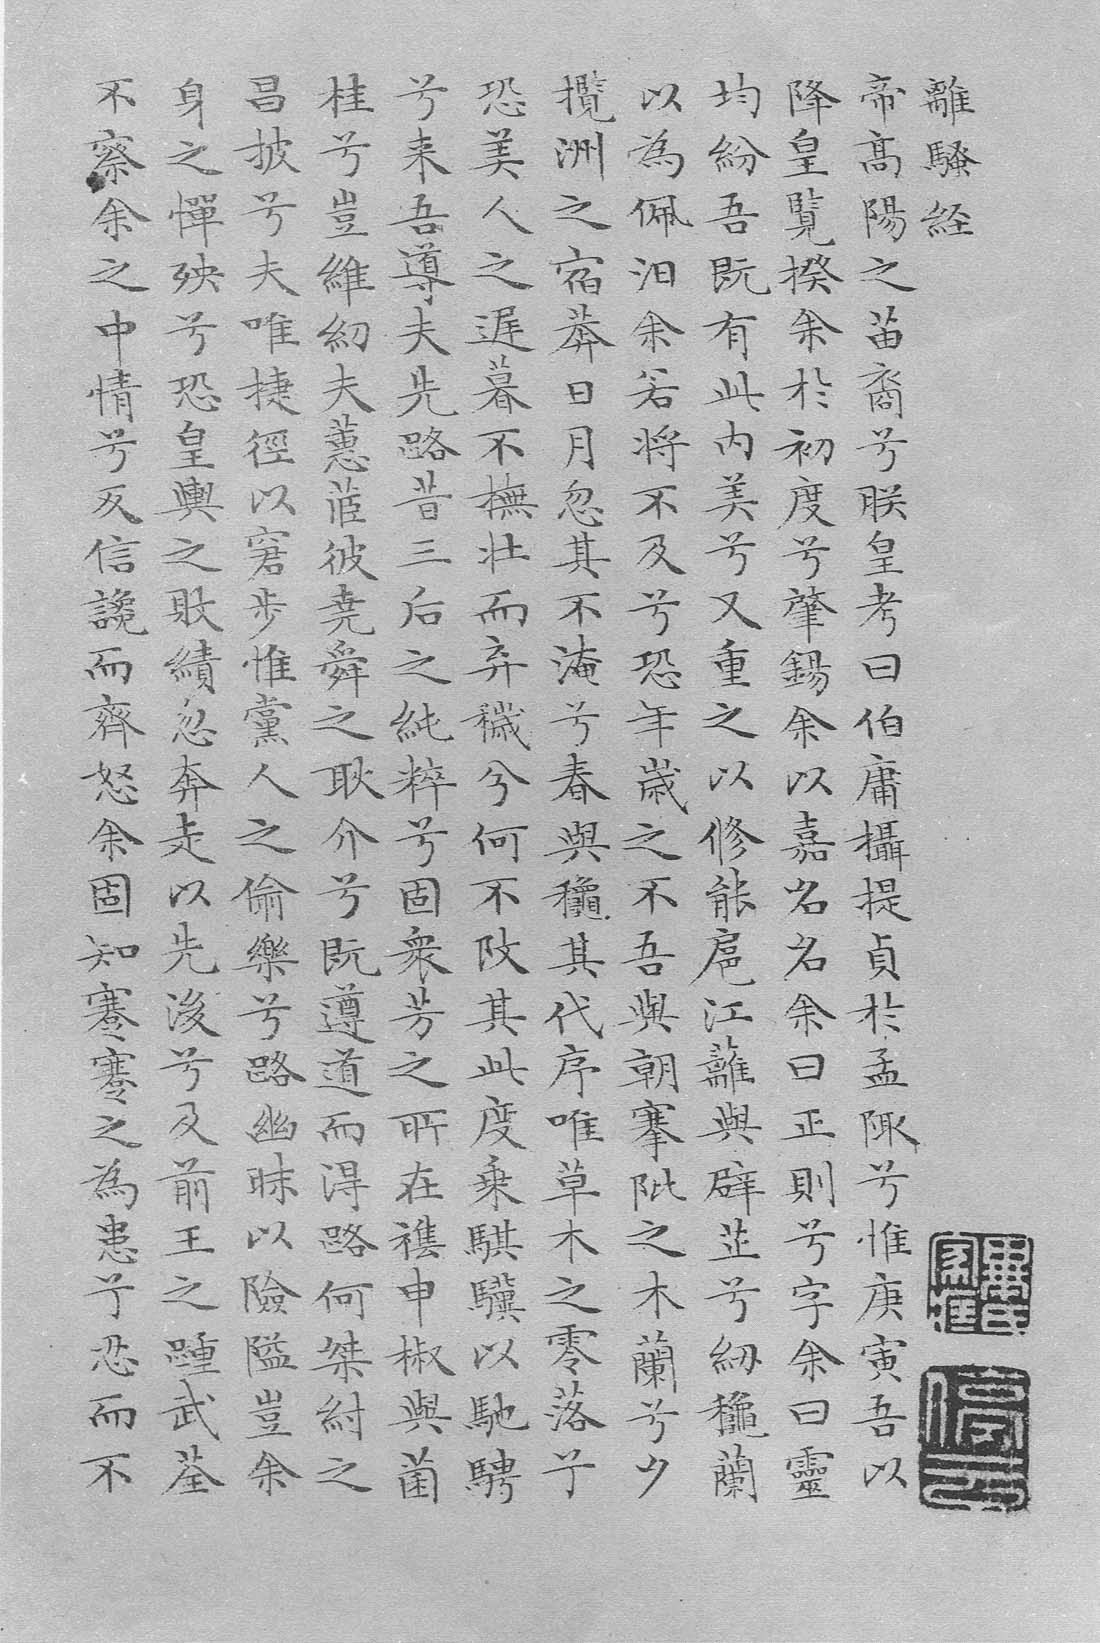 離騷経
帝髙陽之苗裔兮朕皇考曰伯庸攝提貞於孟陬兮惟庚寅吾以
降皇覽揆余於初度兮肇錫余以嘉名名余曰正則兮字余曰靈
均紛吾既有此内美兮又重之以修能扈江蘺與辟芷兮紉龝蘭
以為佩汨余若将不及兮恐年歳之不吾與朝搴阰之木蘭兮夕
攬洲之宿莽日月忽其不淹兮春與龝其代序唯草木之零落兮
恐美人之遅暮不撫壮而弃穢兮何不改其此度乗騏驥以馳騁
兮来吾導夫先路昔三后之純粹兮固衆芳之所在襍申椒與菌
桂兮豈維紉夫蕙茝彼堯舜之耿介兮既遵道而得路何桀紂之
昌披兮夫唯捷徑以窘步惟黨人之偷樂兮路幽昧以險隘豈余
身之憚殃兮恐皇輿之敗績忽奔走以先後兮及前王之踵武荃
不察余之中情兮反信讒而齊怒余固知謇謇之為患兮忍而不